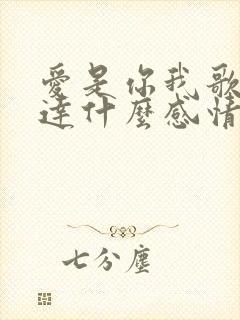 愛是你我歌
達什麼感情
七分塵